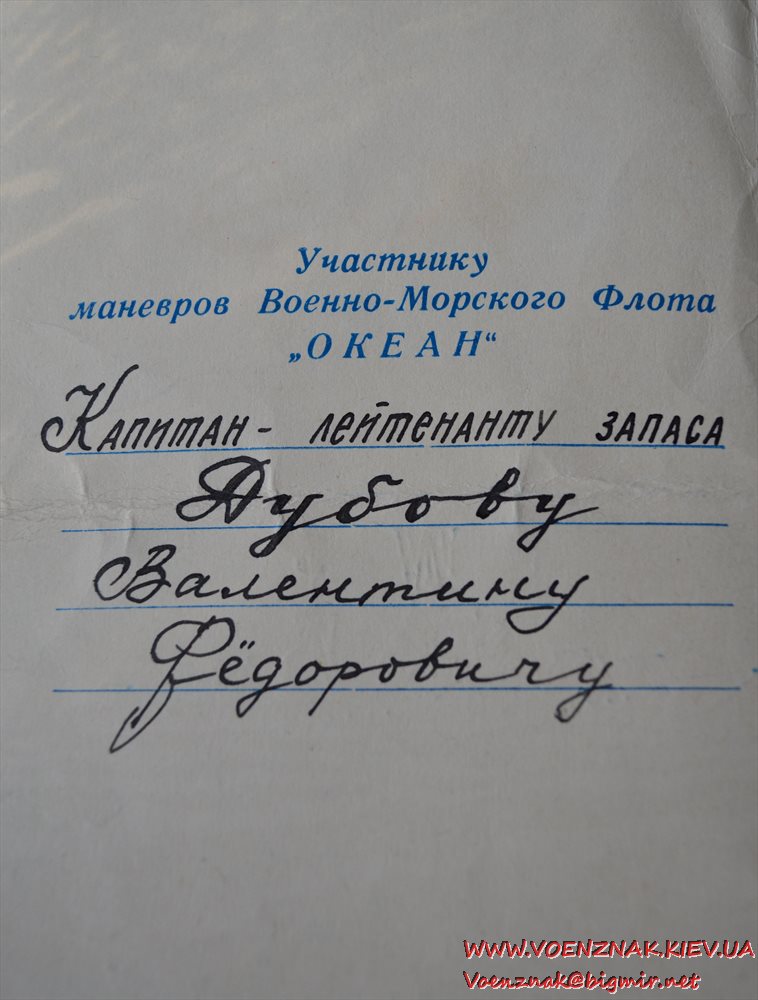 Участнику
маневров Военно-Морского Флота
„ОКЕАН“
Капитан- лейтенанту запаса
Дубову
Валентину
Фёдоровичу
WWW.VOENZNAK.KIEV.UA
Voenznak@bigmir.net